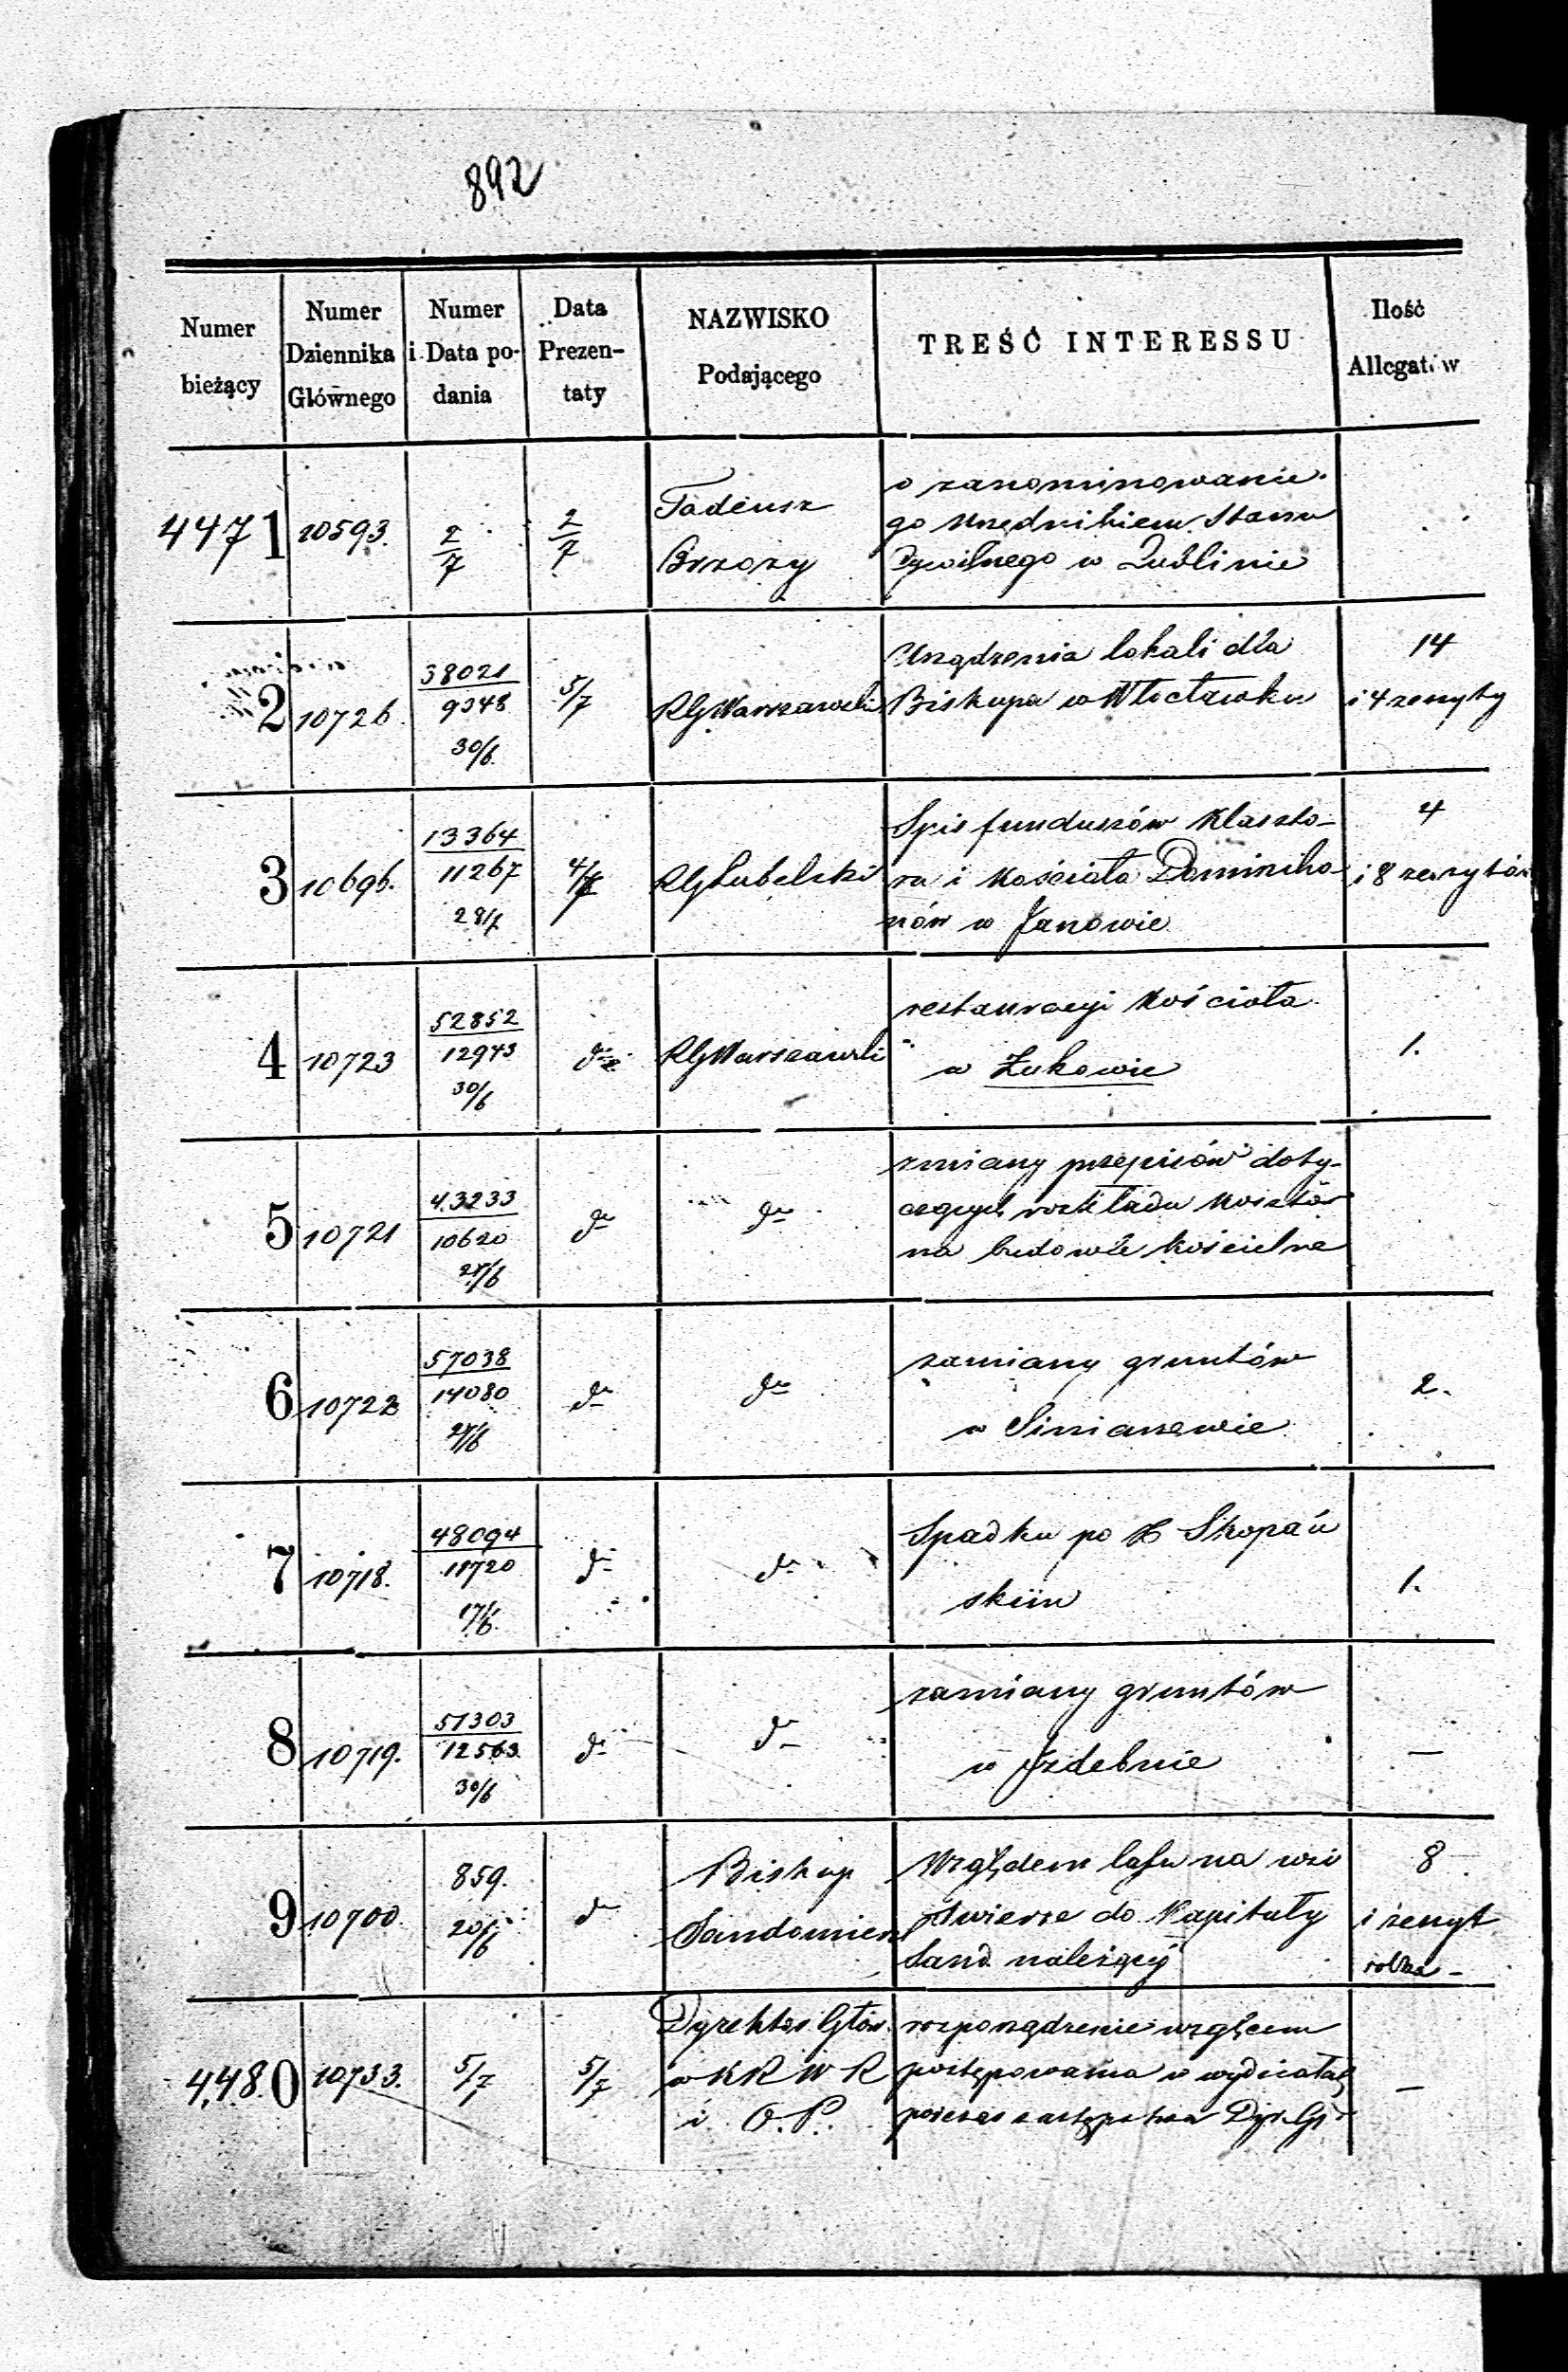 892
Numer bieżący | Numer Dziennika Głównego | Numer i Data podania | Data Prezentaty | NAZWISKO Podającego | TREŚĆ INTERESSU | Ilość Allegatów
4471 | 10593. | 2/7 | 2/7 | Tadeusz
Brzozy | o zanominowanie
go Urzędnikiem Stanu
Cywilnego w Lublinie
2 | 10726. | 38021
9348
30/6. | 5/7 | RGWarszawski | Urządzenia lokali dla
Biskupa w Włocławku | 14
i 4 zeszyty
3 | 10696. | 13364
11267
28/ | 4/7 | RGLubelski | Spis funduszów Klaszto-
ru i Kościoła Dominika-
nów w Janowie | 4
i 8 zeszytów
4 | 10723 | 52852
12943
30/6 | do | RGWarszawski | restauracyi Kościoła
w Żukowie | 1.
5 | 10721 | 43233
10620
/6 | do | do | zmiany przepisów doty-
czących rozkładu Kosztów
na budowle kościelne
6 | 10722 | 57038
14080
/6 | do | do | zamiany gruntów
w | 2.
7 | 10718. | 48094
11720
17/6. | do | do | Spadku po X Skopań
skim | 1.
8 | 10719. | 51303
12563.
30/6 | do | do | zamiany gruntów
w Izdebnie | —
9 | 10700. | 859.
20/6 | do | Biskup
Sandomier | Względem lasu na wsi
Świerże do Kapituły
Sand. należący | 8
i zeszyt
4,48.0 | 10733. | 5/7 | 5/7 | Dyrektor Głów.
w KRWR
i O.P. | rozporządzenie względem
postępowania w wydziałach
podczas zastępstwa Dyr. Gł | —